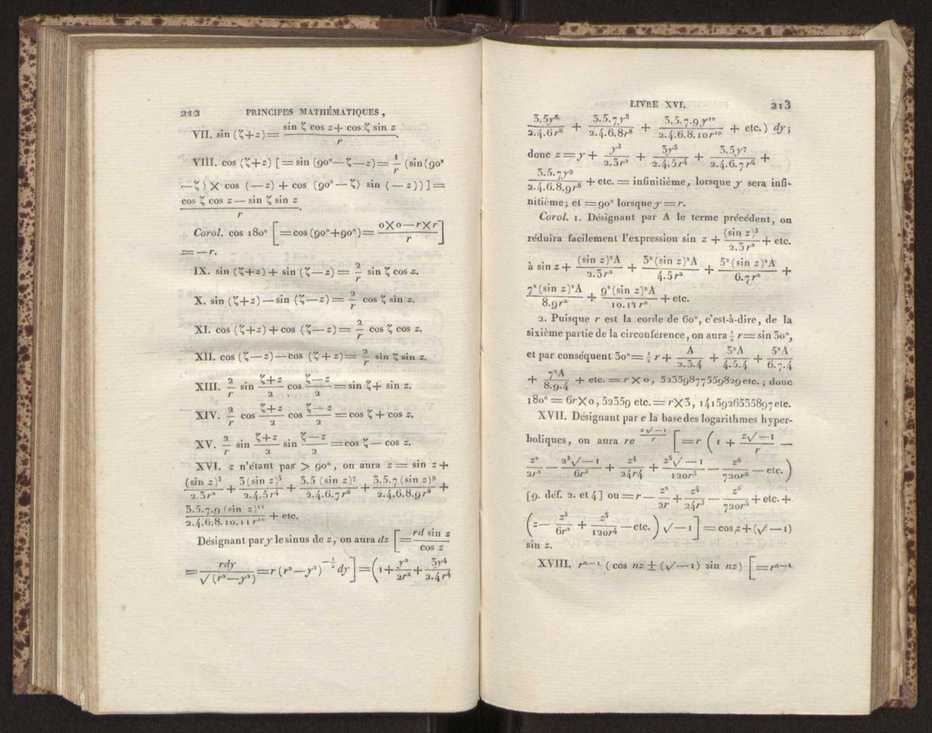 212 PRINCIPES MATHÉMATIQUES,
VII. sin (ζ+z) = (sin ζ cos z + cos ζ sin z)/r.
VIII. cos (ζ+z) [= sin (90°—ζ—z) = 1/r (sin (90°
—ζ) × cos (—z) + cos (90°—ζ) sin (—z))] =
(cos ζ cos z — sin ζ sin z)/r.
Corol. cos 180° [= cos (90°+90°) = (0×0—r×r)/r]
= —r.
IX. sin (ζ+z) + sin (ζ—z) = 2/r sin ζ cos z.
X. sin (ζ+z) — sin (ζ—z) = 2/r cos ζ sin z.
XI. cos (ζ+z) + cos (ζ—z) = 2/r cos ζ cos z.
XII. cos (ζ—z) — cos (ζ+z) = 2/r sin ζ sin z.
XIII. 2/r sin (ζ+z)/2 cos (ζ—z)/2 = sin ζ + sin z.
XIV. 2/r cos (ζ+z)/2 cos (ζ—z)/2 = cos ζ + cos z.
XV. 2/r sin (ζ+z)/2 sin (ζ—z)/2 = cos ζ — cos z.
XVI. z n'étant pas > 90°, on aura z = sin z +
(sin z)³/2.3r² + 3(sin z)⁵/2.4.5r⁴ + 3.5 (sin z)⁷/2.4.6.7r⁶ + 3.5.7 (sin z)⁹/2.4.6.8.9r⁸ +
3.5.7.9 (sin z)¹¹/2.4.6.8.10.11r¹⁰ + etc.
Désignant par y le sinus de z, on aura dz [= rd sin z/cos z
= rdy/√(r²—y²) = r (r²—y²)^(—1/2) dy] = (1 + y²/2r² + 3y⁴/2.4r⁴
LIVRE XVI. 213
3.5y⁶/2.4.6r⁶ + 3.5.7y⁸/2.4.6.8r⁸ + 3.5.7.9y¹⁰/2.4.6.8.10r¹⁰ + etc.) dy;
donc z = y + y³/2.3r² + 3y⁵/2.4.5r⁴ + 3.5y⁷/2.4.6.7r⁶ +
3.5.7y⁹/2.4.6.8.9r⁸ + etc. = infinitième, lorsque y sera infi-
nitième; et = 90° lorsque y = r.
Corol. 1. Désignant par A le terme précédent, on
réduira facilement l'expression sin z + (sin z)³/2.3r² + etc.
à sin z + (sin z)²A/2.3r² + 3²(sin z)²A/4.5r² + 5²(sin z)²A/6.7r² +
7²(sin z)²A/8.9r² + 9²(sin z)²A/10.11r² + etc.
2. Puisque r est la corde de 60°, c'est-à-dire, de la
sixième partie de la circonférence, on aura ½ r = sin 30°,
et par conséquent 30° = ½ r + A/2.3.4 + 3²A/4.5.4 + 5²A/6.7.4
+ 7²A/8.9.4 + etc. = r × 0, 5235987755982 9 etc.; donc
180° = 6r×0, 52359 etc. = r×3, 1415926535897 etc.
XVII. Désignant par e la base des logarithmes hyper-
boliques, on aura re^(z√—1/r) [= r (1 + z√—1/r —
z²/2r² — z³√—1/6r³ + z⁴/24r⁴ + z⁵√—1/120r⁵ — z⁶/720r⁶ — etc.)
[9. déf. 2. et 4] ou = r — z²/2r + z⁴/24r³ — z⁶/720r⁵ + etc. +
(z — z³/6r² + z⁵/120r⁴ — etc.) √—1] = cos z + (√—1)
sin z.
XVIII. rⁿ⁻¹ (cos nz ± (√—1) sin nz) [= rⁿ⁻¹